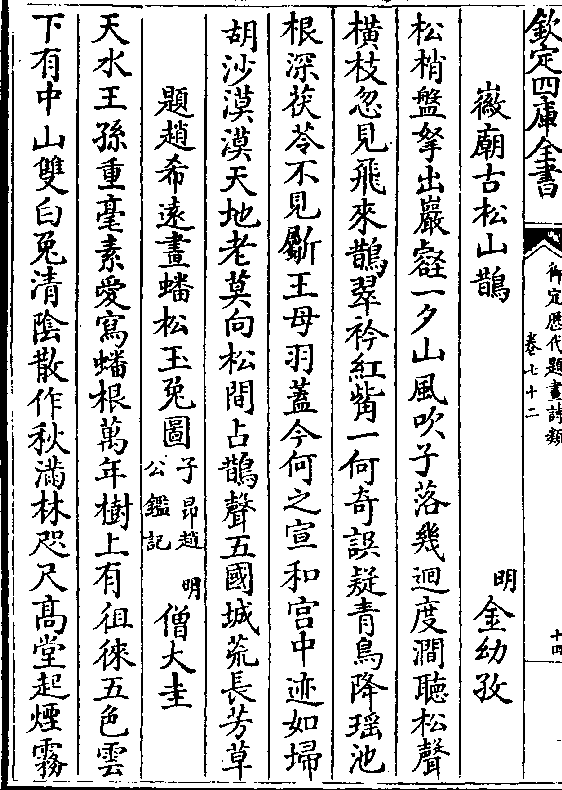 欽定四庫全書
御定歷代題畫詩類
卷七十二
十四
徽廟古松山鵲
明
金幼孜
松梢盤拏出巖壑一夕山風吹子落幾迴度澗聽松聲
橫枝忽見飛來鵲翠衿紅觜一何奇誤疑青鳥降瑶池
根深茯苓不見斸王母羽蓋今何之宣和宫中迹如埽
胡沙漠漠天地老莫向松間占鵲聲五國城荒長芳草
題趙希遠畫蟠松玉兔圖
子昂趙
公鑑記
明
僧大圭
天水王孫重毫素愛寫蟠根萬年樹上有徂徠五色雲
下有中山雙白兔清陰散作秋滿林咫尺髙堂起煙霧